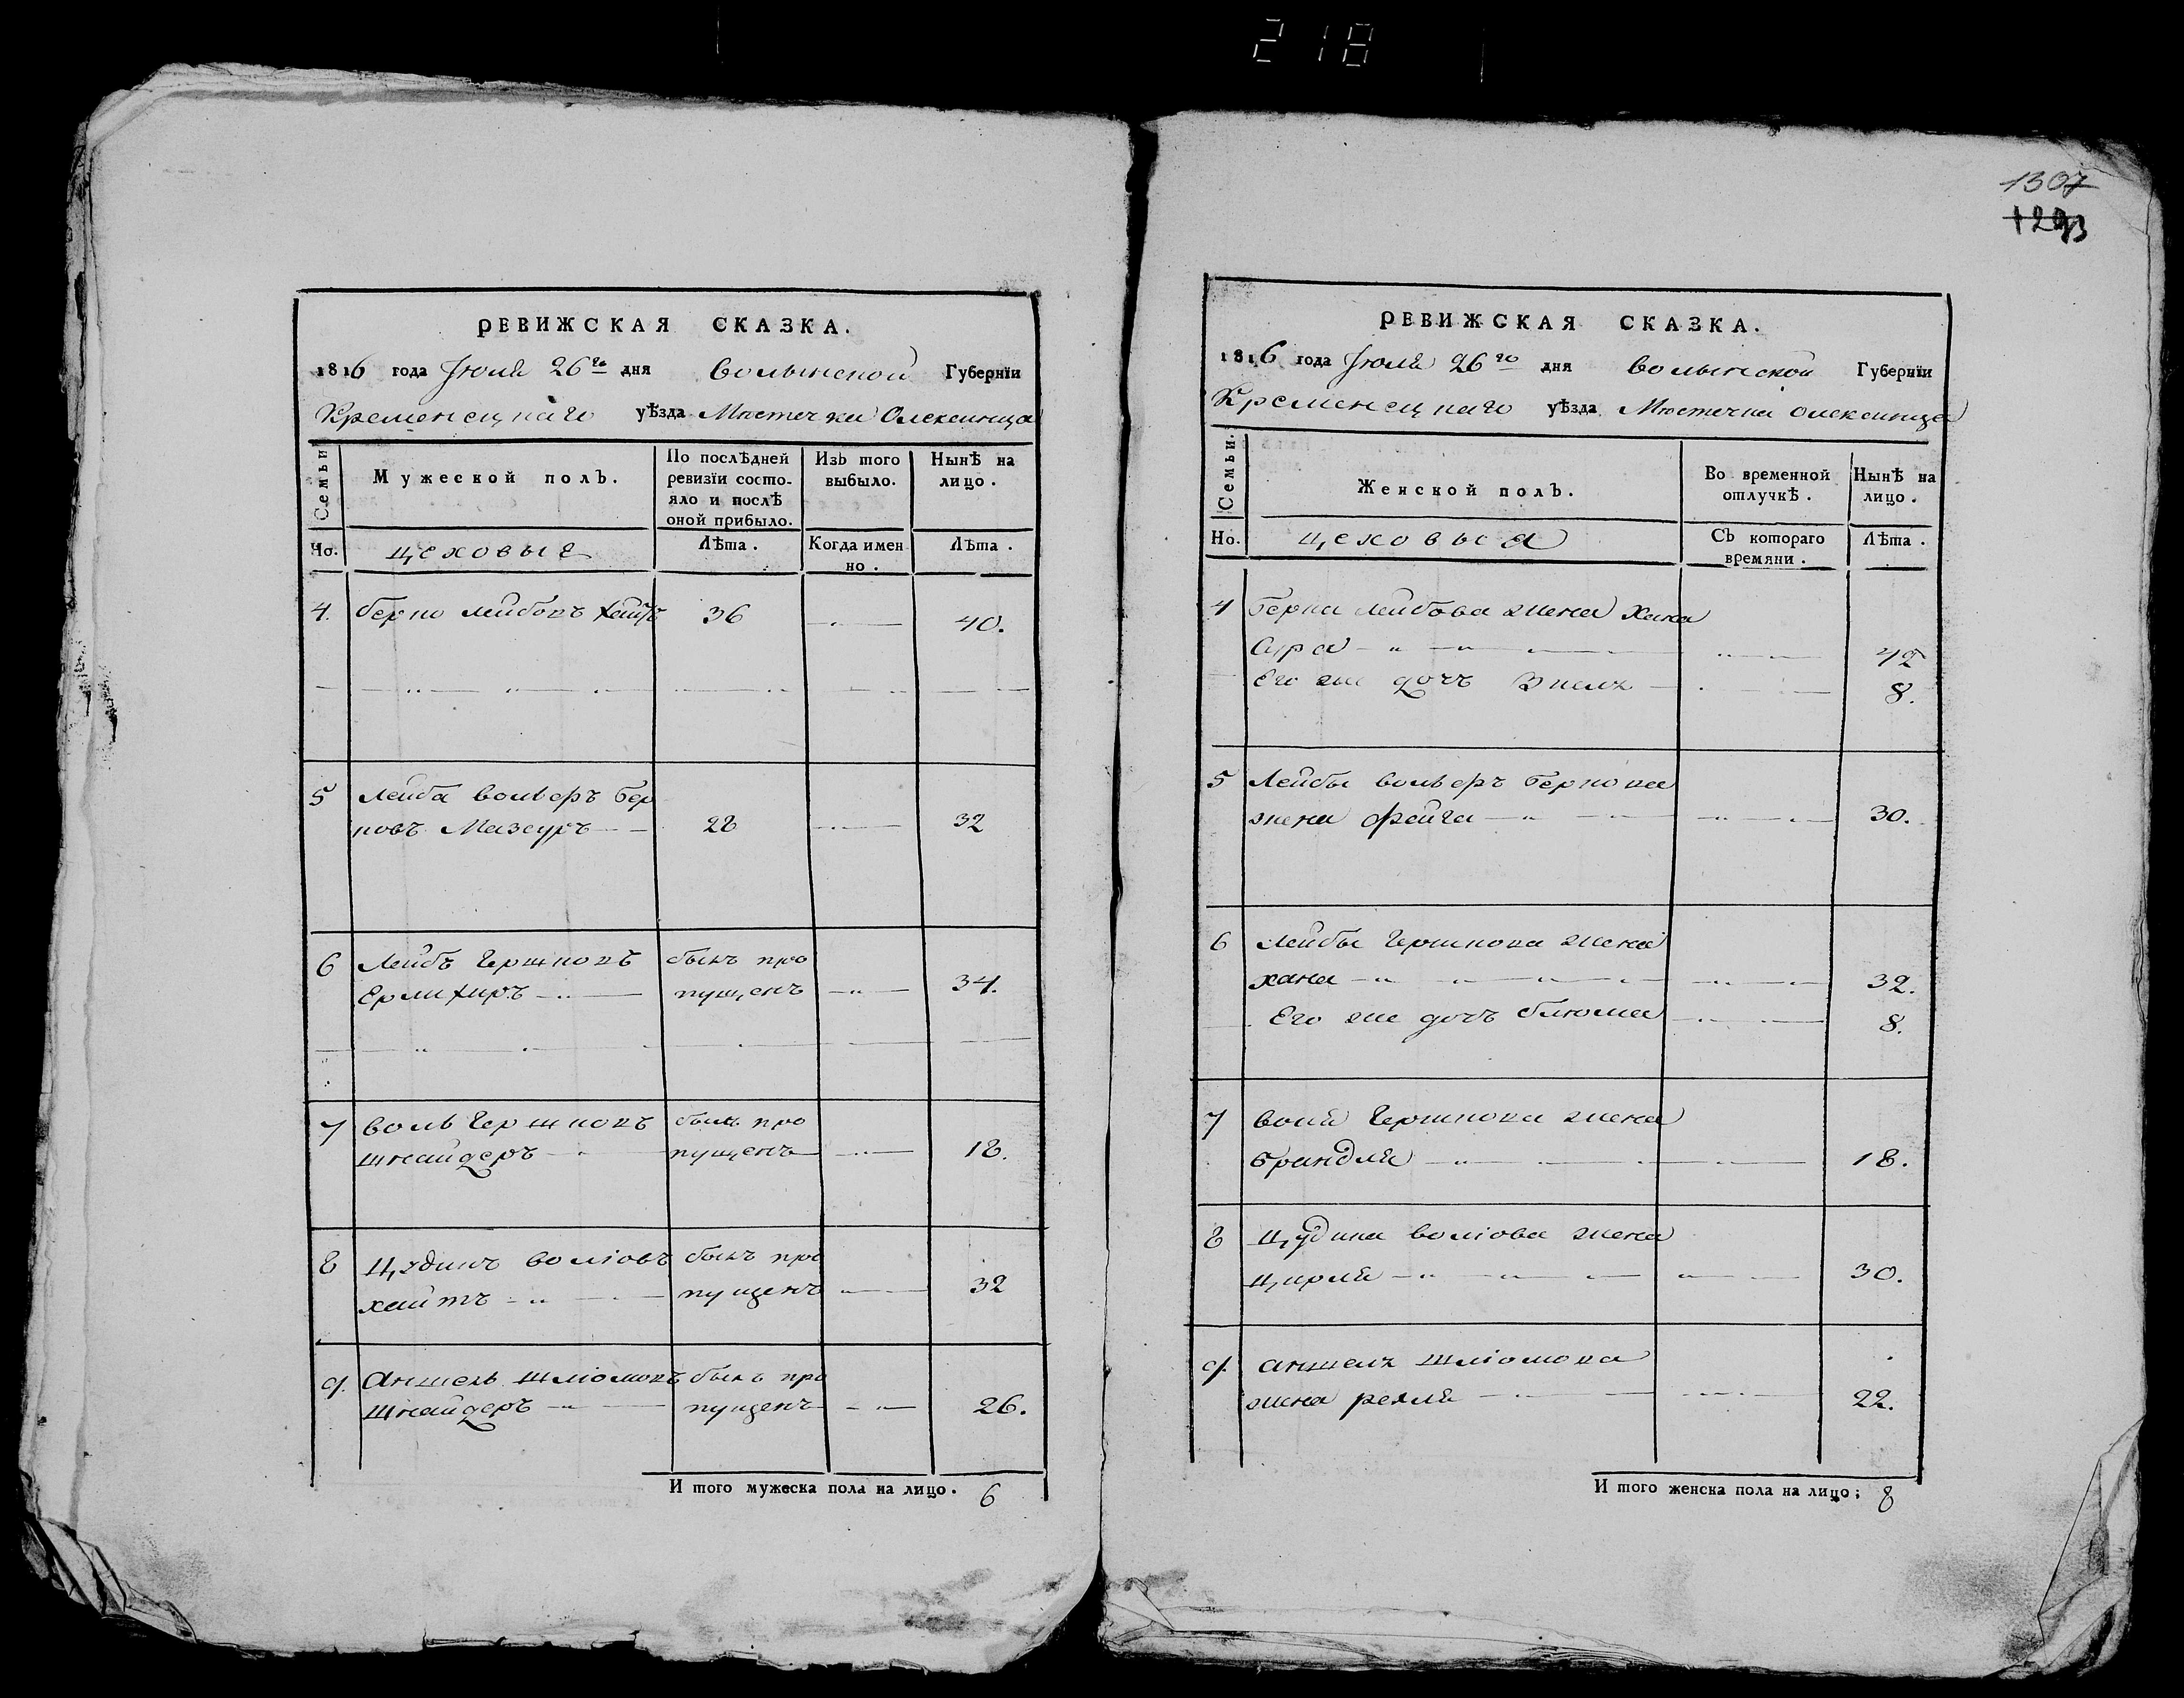 218
1307
1293
РЕВИЖСКАЯ СКАЗКА.
1816 года Іюля 26го дня Волынской Губернїи
Кременецкаго уѣзда Местечка Олексинца
Семьи
Мужеской полъ.
По послѣдней ревизїи состо-
яло и послѣ
оной прибыло.
Изь того
выбыло.
Нынѣ на
лицо.
Но.
цеховые
Лѣта.
Когда имен
но.
Лѣта.
4. Берко Лейбовъ 36 40.
5 Лейба Вольфъ Бер
ковъ Мазуръ 28 32
6 Лейбъ Гершковъ былъ про
пущенъ 34.
7 Воль Гершковъ былъ про
шнайдеръ пущенъ 18.
8 Цудикъ Волїовъ былъ про
хаитъ пущенъ 32
9. Аншель Шлїомовъ былъ про
Шнайдеръ пущенъ 26.
И того мужеска пола на лицо. 6
РЕВИЖСКАЯ СКАЗКА.
1816 года Іюля 26го дня Волынской Губернїи
Кременецкаго уѣзда Местечка Олексинца
Семьи.
Женской полъ.
Во временной
отлучкѣ.
Нынѣ на
лицо.
Но.
цеховыя
Съ котораго
времяни.
Лѣта.
4 Берка Лейбова жена Хана
Сура 42
Его же дочь 8.
5 Лейбы Вольфъ Беркова
жена Фейга 30.
6 Лейбы Гершкова жена
хана 32.
Его же дочь Блюма 8.
7 Воля Гершкова жена
Брандля 18.
8 Цудика Волїова жена
Цирля 30.
9. Аншель Шлїомова
жена рейля 22.
И того женска пола на лицо; 8